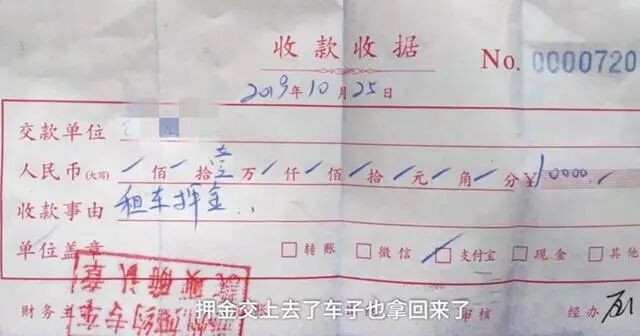 收款收据 No. 0000720
2019年10月25日
交款单位
人民币(大写) / 佰 / 拾 壹 万 / 仟 / 佰 / 拾 / 元 / 角 / 分 ¥10000.
收款事由 租车押金
单位盖章 □转账 □微信 ☑支付宝 □现金 □其他
财务主 审核 经办
押金交上去了车子也拿回来了